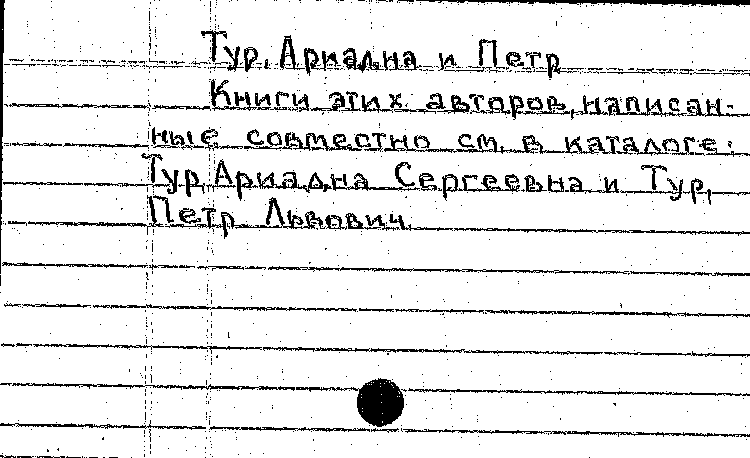 Тур, Ариадна и Петр
Книги этих авторов, написан-
ные совместно см. в каталоге:
Тур, Ариадна Сергеевна и Тур,
Петр Львович.